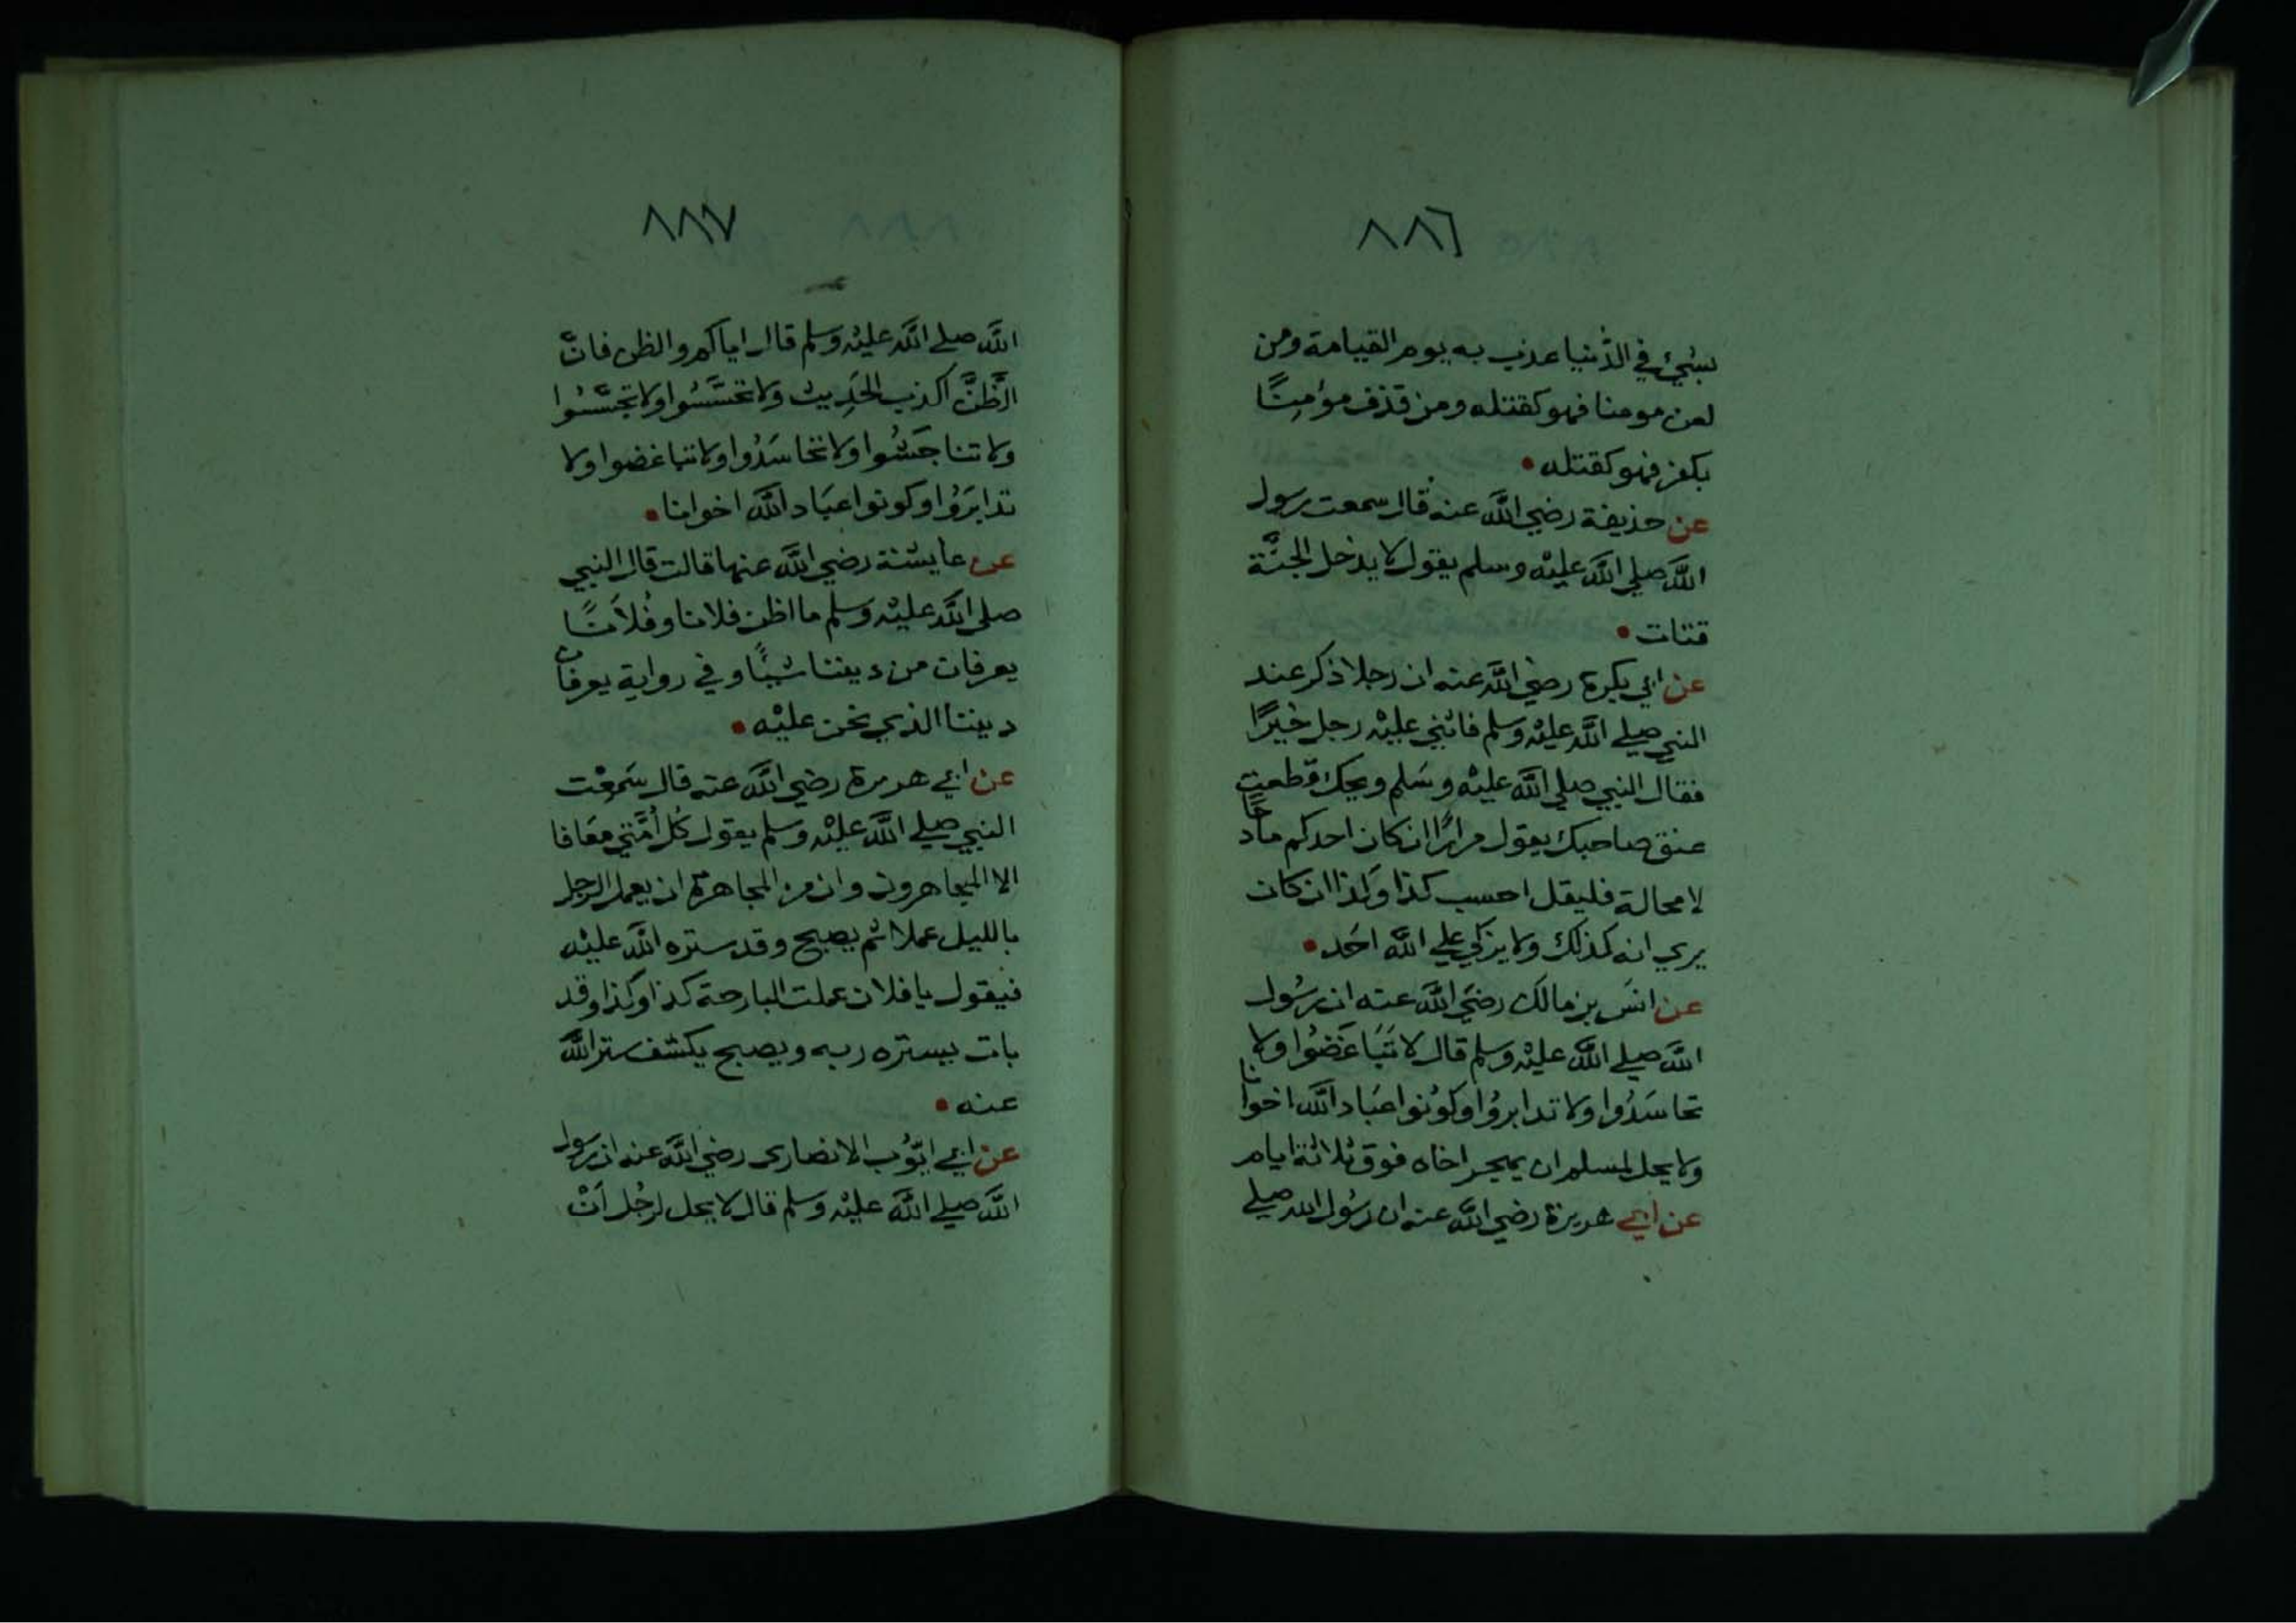 ٨٨٦
بشيء في الدُّنيا عذب به يوم القيامة ومن
لعن مومنا فهو كقتله ومن قذف مؤمِنًا
بكفر فهو كقتله •
عن حذيفة رضي اللّه عنه قال سمعت رسول
اللّه صلي اللّه عليْه وسلم يقول لا يدخل الجنَّة
قتات •
عن ابي بكرة رضي اللّه عنه ان رجلا ذكر عند
النبي صلي اللّه عليْه وسلم فاثني عليْه رجل خيرًا
فقال النبي صلي اللّه عليْه وسَلم ويحك قطعت
عنق صاحبك يقول مرارًا ان كان احدكم مادحًا
لا محالة فليقل احسب كذا وكذا ان كان
يري انه كذلك ولا يزكي علي اللّه احَد •
عن انسَ بن مالك رضيَ اللّه عنه ان رسُول
اللّه صلي اللّه عليْه وسلم قال لا تَبَاغَضُوا ولا
تحاسَدُوا ولا تدابرُوا وكوُنوا عبَاد اللّه اخوانا
ولا يحل لمسلم ان يهجر اخاه فوق ثلاثة ايام
عن ابي هريرة رضي اللّه عنه ان رسُول الله صلي
٨٨٧
اللّه صلي اللّه عليْه وسلم قال اياكم والظن فانَّ
الظنَّ اكذب الحَدِيث ولا تحسَّسُوا ولا تجسَّسُوا
ولا تناجَشُوا ولا تحاسَدُوا ولا تباغضوا ولا
تدابَرَوُا وكونوا عبَاد اللّه اخوانا •
عن عايشة رضي اللّه عنها قالت قال النبي
صلي اللّه عليْه وسلم ما اظن فلانا وفُلاَنًا
يعرفان من ديننا شيئًا وفي رواية يعرفان
ديننا الذي نحن عليْه •
عن ابي هريرة رضي اللّه عنه قال سَمِعْت
النبي صلي اللّه عليْه وسلم يقول كُل أمَّتي معَافا
الا المجاهرون وان من المجاهرة ان يعمل الرجل
بالليل عملا ثم يصبح وقد ستره اللّه عليْه
فيقول يا فلان عملت البارحة كذا وكذا وقد
بات يستره ربه ويصبح يكشف ستر اللّه
عنه •
عن ابي ايُّوب الانصارى رضي اللّه عنه ان رسول
اللّه صلي اللّه عليْه وسلم قال لا يحل لرجُل اَنْ